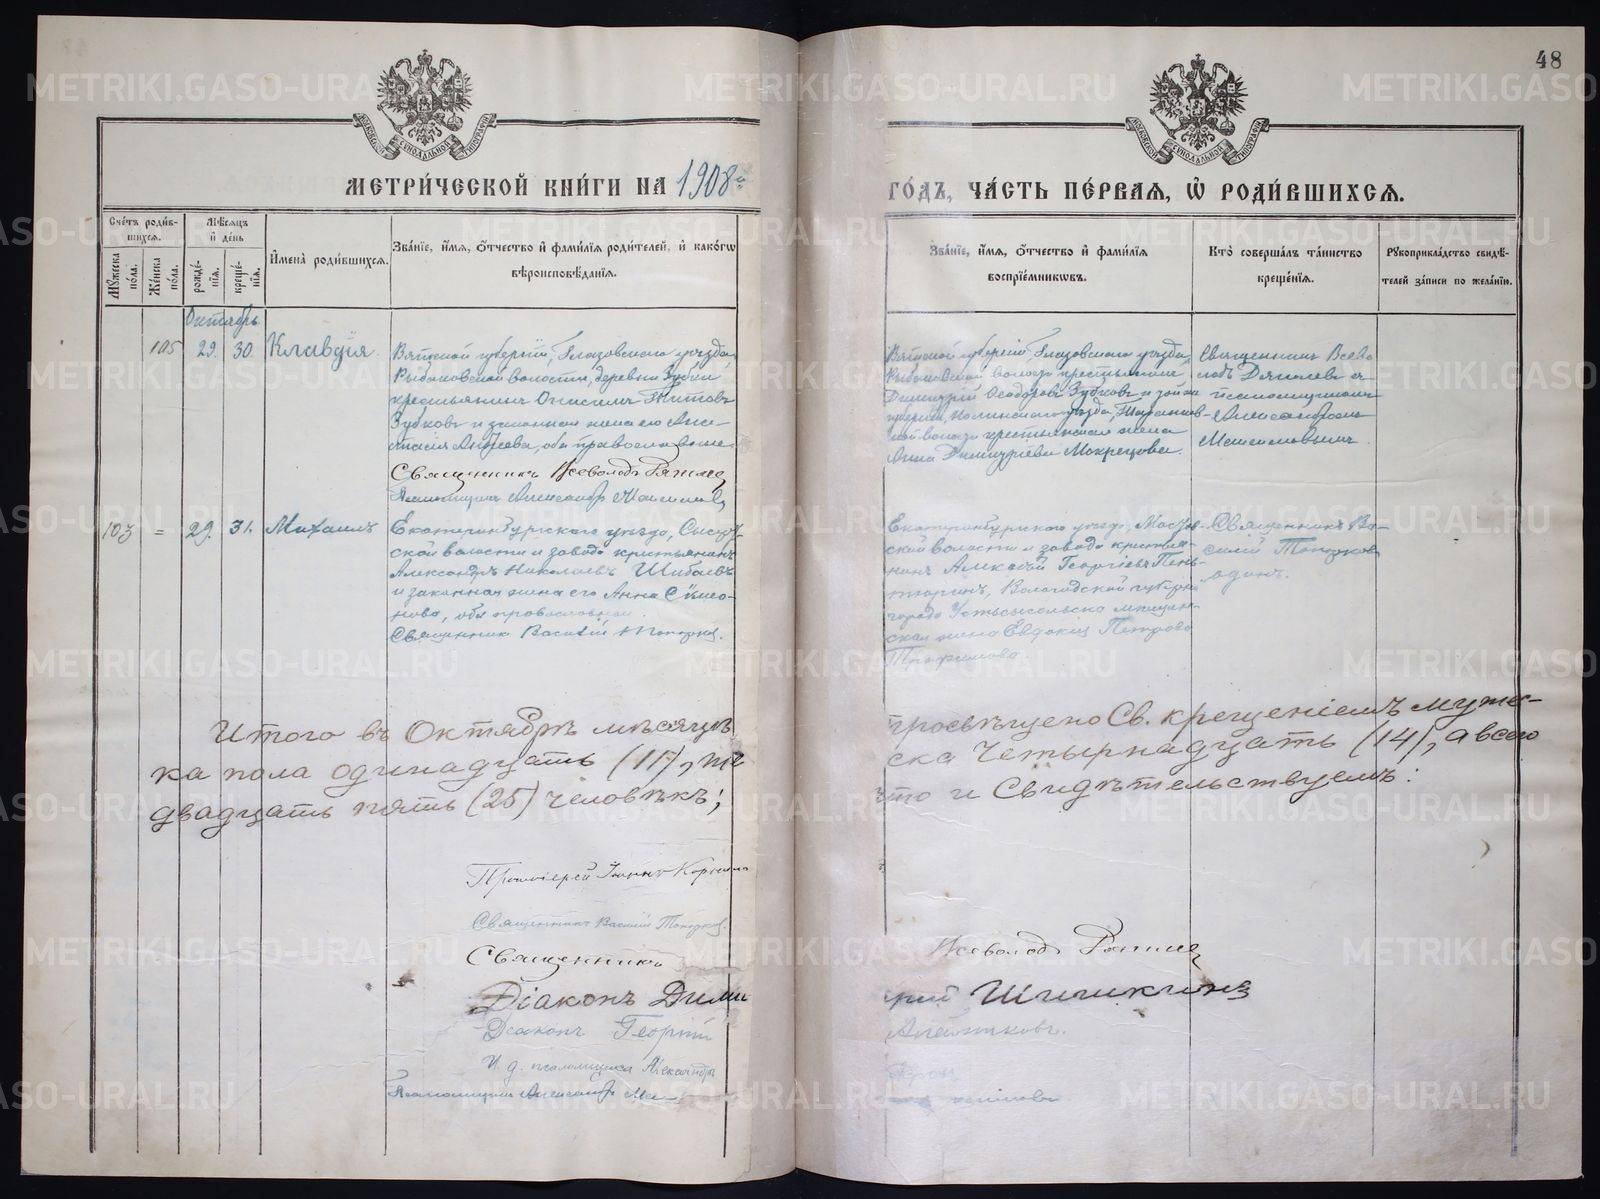 48
МОСКОВСКОЙ СѴНОДАЛЬНОЙ ТИПОГРАФІИ
МОСКОВСКОЙ СѴНОДАЛЬНОЙ ТИПОГРАФІИ
МЕТРИ́ЧЕСКОЙ КНИ́ГИ НА 1908 й
ГО́ДЪ, ЧА́СТЬ ПЕ́РВАЯ, Ѡ҆ РОДИ́ВШИХСЯ.
Сче́тъ роди́в-
шихся.
Мѣ́сяцъ
и҆ де́нь
Мꙋ́жеска
по́ла.
Же́нска
по́ла.
рожде́-
нїя.
креще́-
нїя.
И҆мена̀ роди́вшихся.
Зва́нїе, и҆́мя, ѻ҆́тчество и҆ фами́лїя роди́телей, и҆ како́гѡ
вѣроисповѣ́данїя.
Зва́нїе, и҆́мя, ѻ҆́тчество и҆ фами́лїя
воспрїе́мникѡвъ.
Кто̀ соверша́лъ та́инство
креще́нїя.
Рꙋкоприкла́дство свидѣ́-
телей за́писи по жела́нїю.
Октябрь
105 29. 30. Клавдія.
Вятской губерніи, Глазовскаго уѣзда,
Рыбаковской волости, деревни Зубки
крестьянинъ Онисимъ Титовъ
Зубковъ и законная жена его Ана-
стасія Андреева, оба православные.
Священникъ Всеволодъ
Псаломщикъ Александръ
Вятской губерніи, Глазовскаго уѣзда,
Рыбаковской волости крестьянинъ
Димитрій Ѳеодоровъ Зубковъ и той же
губерніи, Нолинскаго уѣзда,
кой волости крестьянская жена
Анна Димитріева Мокрецова.
Священникъ Всево
лодъ съ
псаломщикомъ
Александромъ
103 = 29. 31. Михаилъ
Екатеринбургскаго уѣзда, Сысерт-
ской волости и завода крестьянинъ
Александръ Николаевъ Шибаевъ
и законная жена его Анна Сѵмео-
нова, оба православные.
Священникъ Василій Топорков.
Екатеринбургскаго уѣзда,
ской волости и завода крестья-
нинъ Алексѣй Георгіевъ Пень-
Вологодской губерніи
города Устьсысольска мещан-
ская жена Евдокія Петрова
Трофимова.
Священникъ Ва-
силій Топорков
одинъ.
Итого въ Октябрѣ мѣсяцѣ
просвѣщено Св. крещеніемъ муже-
ска пола одинадцать (11), же
ска четырнадцать (14), а всего
двадцать пять (25) человѣкъ;
что и Свидѣтельствуемъ:
Протоіерей Іоаннъ
Священникъ Василій Топорков.
Священникъ Всеволодъ
Діаконъ Димитрій Шишкинъ
Діаконъ Георгій
И. д. псаломщика Александръ
Псаломщикъ Александръ
METRIKI.GASO-URAL.RU